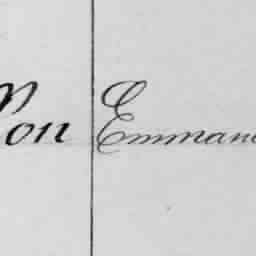 on Emman